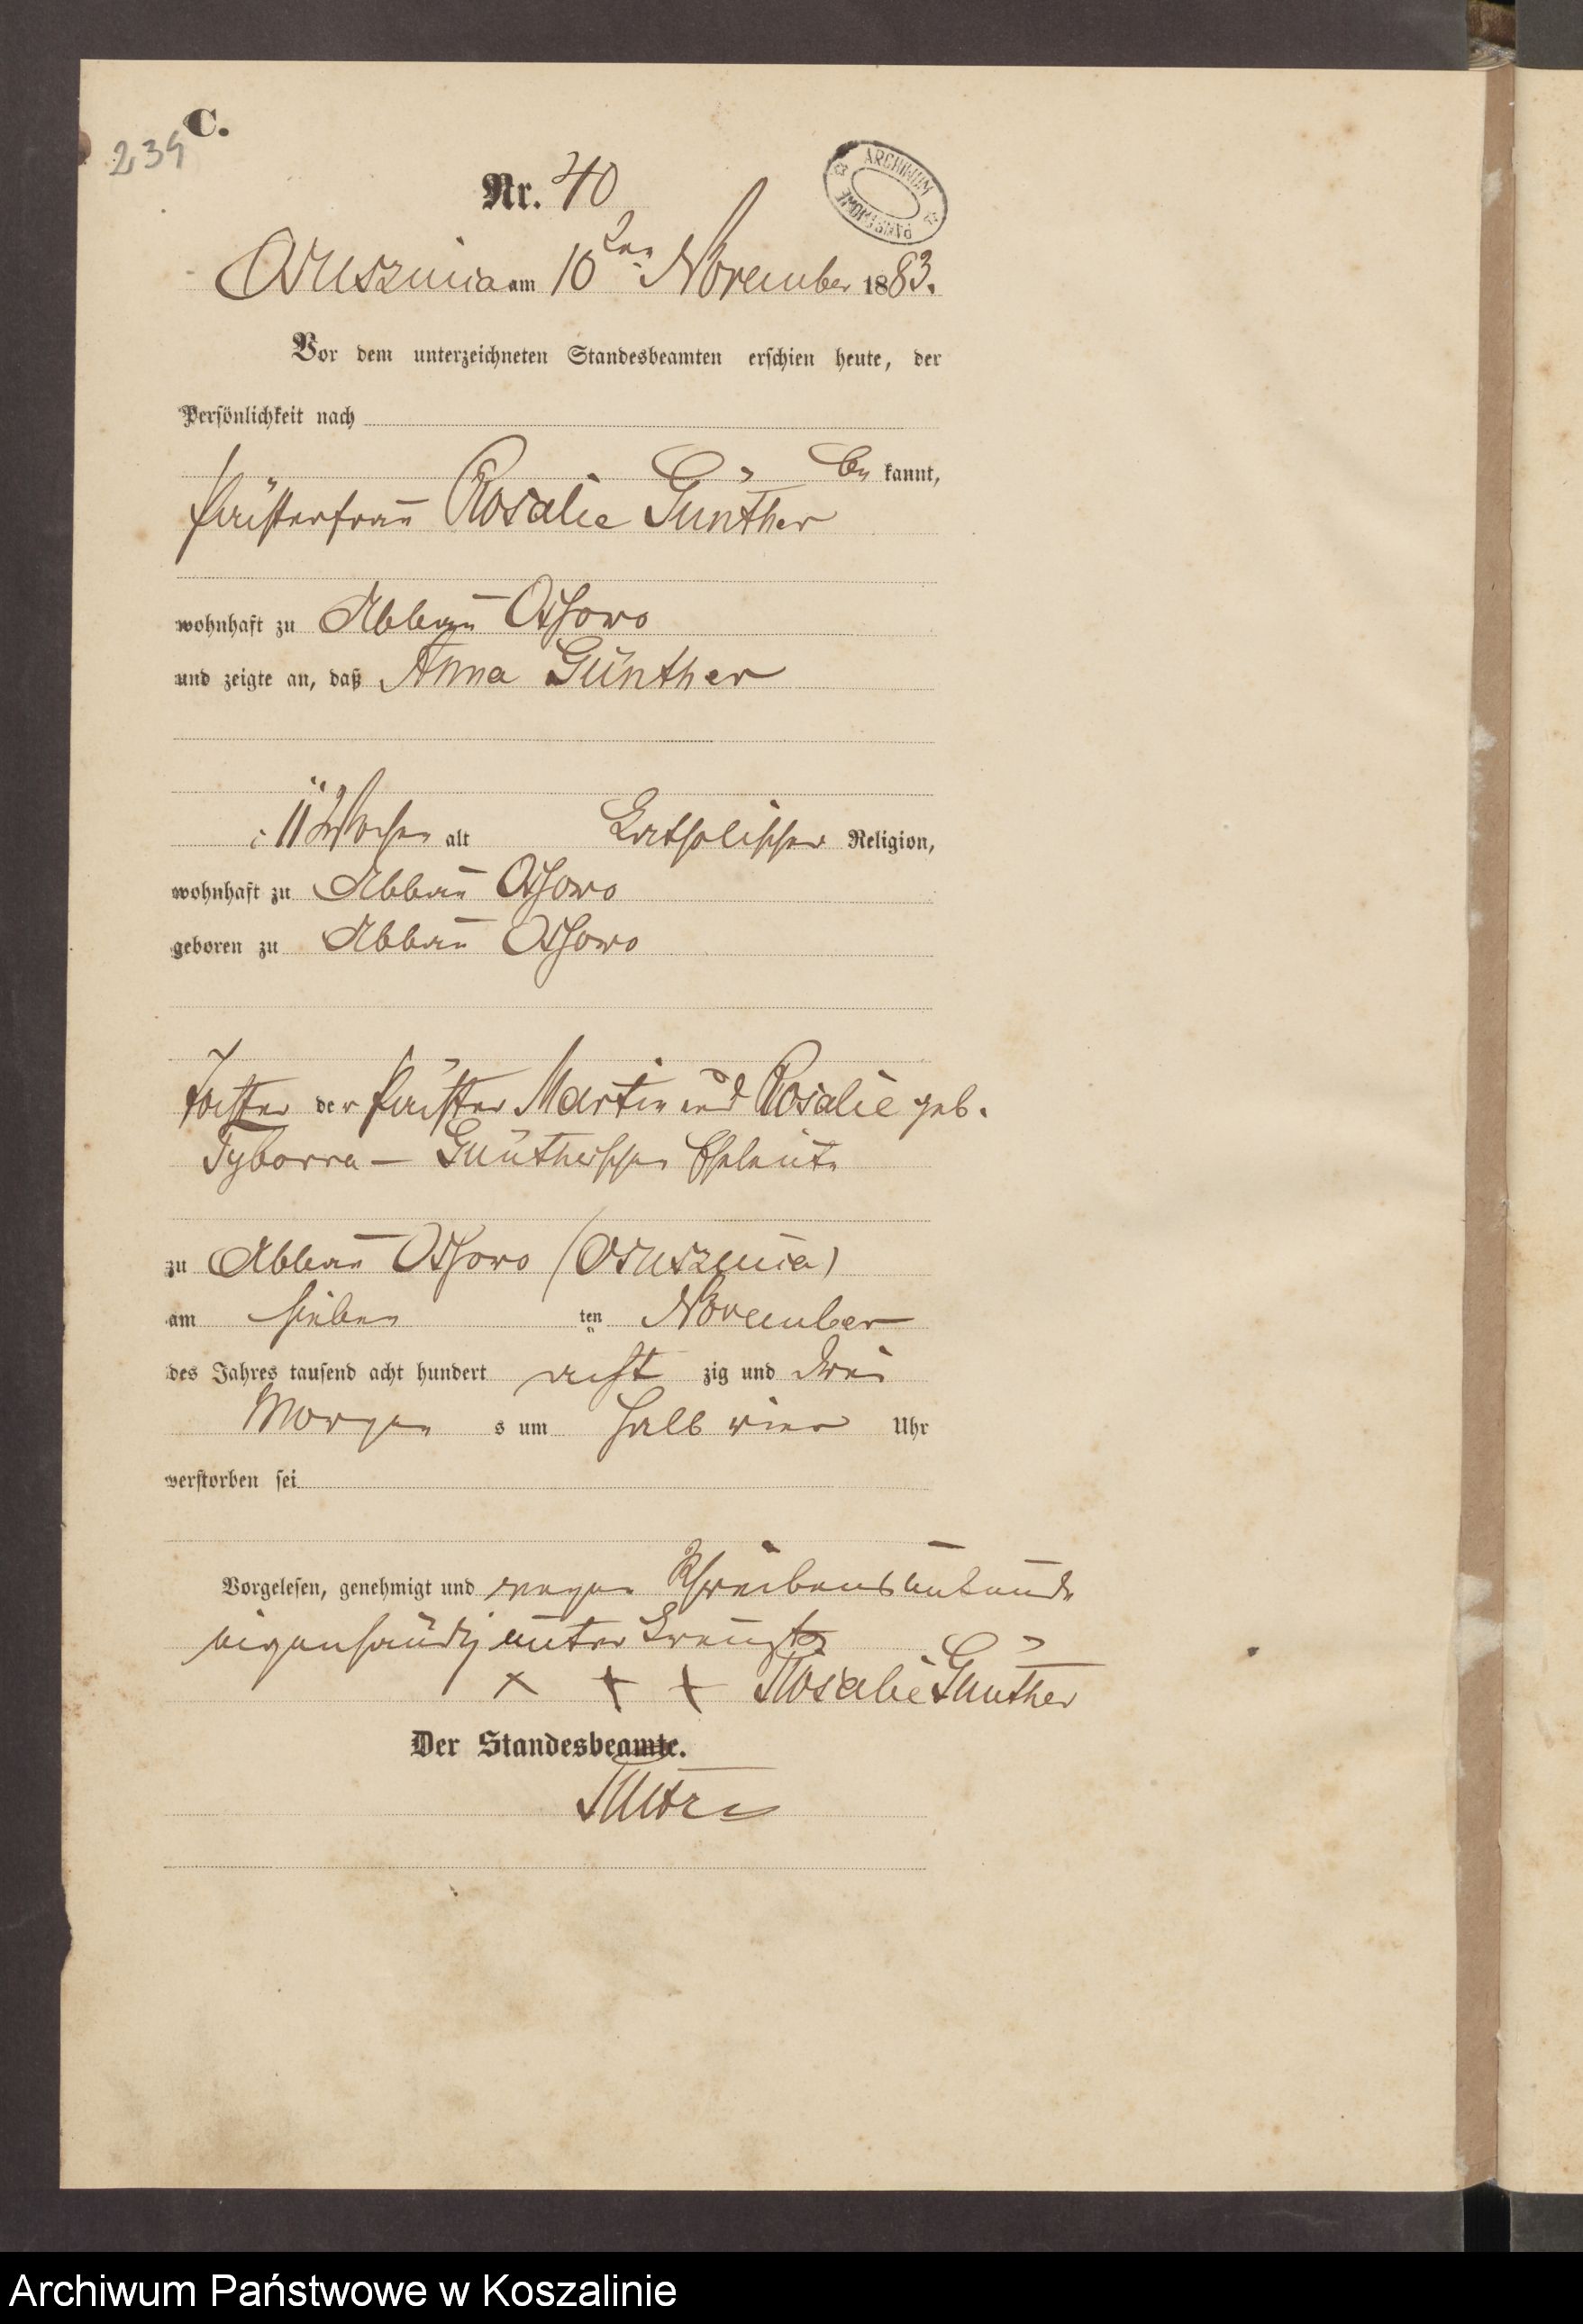 C.
239
Nr. 40
ARCHIWUM
PAŃSTWOWE
Osusznica am 10ten November 1883.
Vor dem unterzeichneten Standesbeamten erschien heute, der
Persönlichkeit nach
be kannt,
Pächterfrau Rosalie Günther
wohnhaft zu Abbau Ossowo
und zeigte an, daß Anna Günther
11 Wochen alt katholischer Religion,
wohnhaft zu Abbau Ossowo
geboren zu Abbau Ossowo
Tochter der Pächter Martin und Rosalie geb.
Tyborra – Güntherschen Eheleute
zu Abbau Ossowo (Osusznica)
am sieben ten November
des Jahres tausend acht hundert acht zig und drei
Morgen s um halb vier Uhr
verstorben sei
Vorgelesen, genehmigt und wegen Schreibensunkunde
eigenhändig unterkreuzt
× + + Rosalie Günther
Der Standesbeamte.
Archiwum Państwowe w Koszalinie